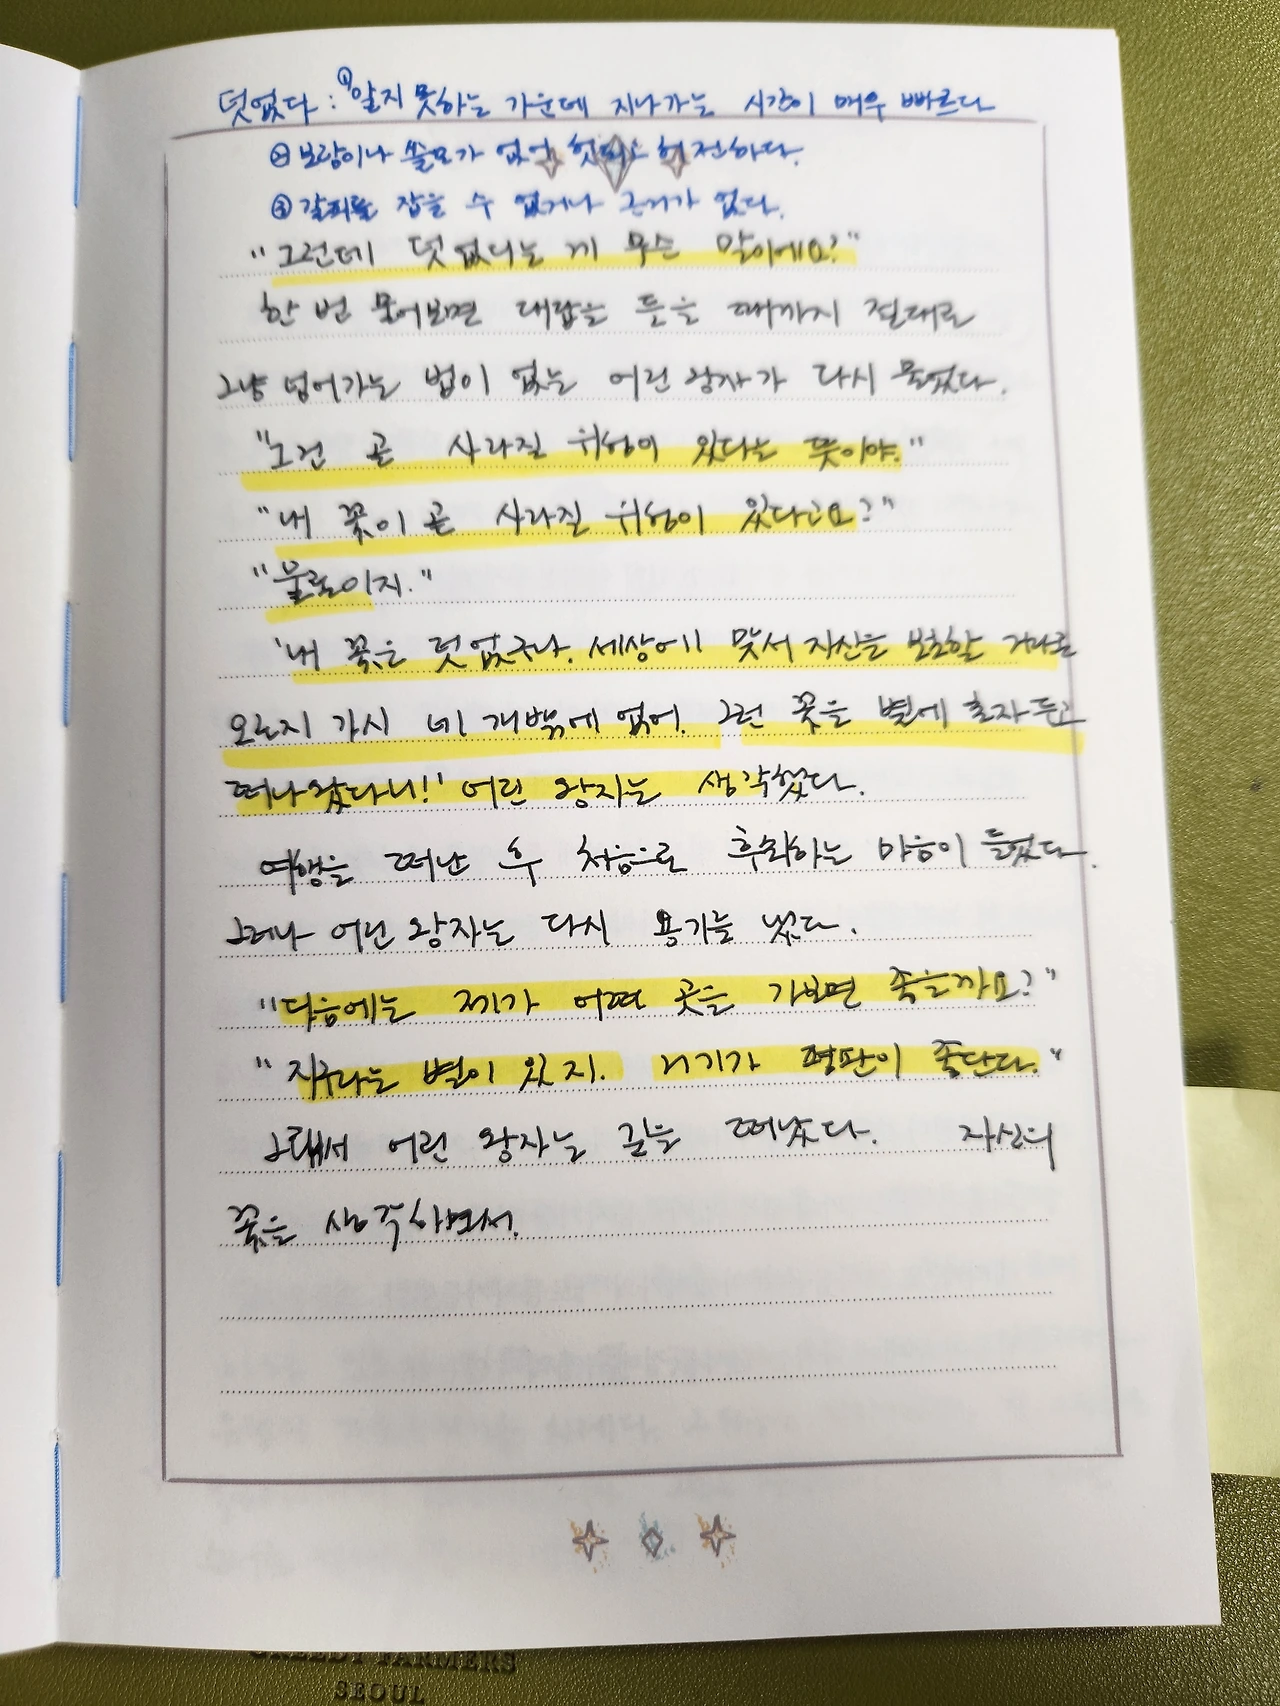 덧없다 : ① 알지 못하는 가운데 지나가는 시간이 매우 빠르다
② 보람이나 쓸모가 없어 헛되고 허전하다.
③ 갈피를 잡을 수 없거나 근거가 없다.
"그런데 덧없다는 게 무슨 말이에요?"
한 번 물어보면 대답을 들을 때까지 절대로
그냥 넘어가는 법이 없는 어린 왕자가 다시 물었다.
"그건 곧 사라질 위험이 있다는 뜻이야."
"내 꽃이 곧 사라질 위험이 있다고요?"
"물론이지."
'내 꽃은 덧없구나. 세상에 맞서 자신을 보호할 거라곤
오로지 가시 네 개밖에 없어. 그런 꽃을 별에 혼자 두고
떠나왔다니!' 어린 왕자는 생각했다.
여행을 떠난 후 처음으로 후회하는 마음이 들었다.
그러나 어린 왕자는 다시 용기를 냈다.
"다음에는 제가 어떤 곳을 가보면 좋을까요?"
"지구라는 별이 있지. 거기가 평판이 좋단다."
그래서 어린 왕자는 길을 떠났다. 자신의
꽃을 생각하면서.
GREEDY FARMERS
SEOUL